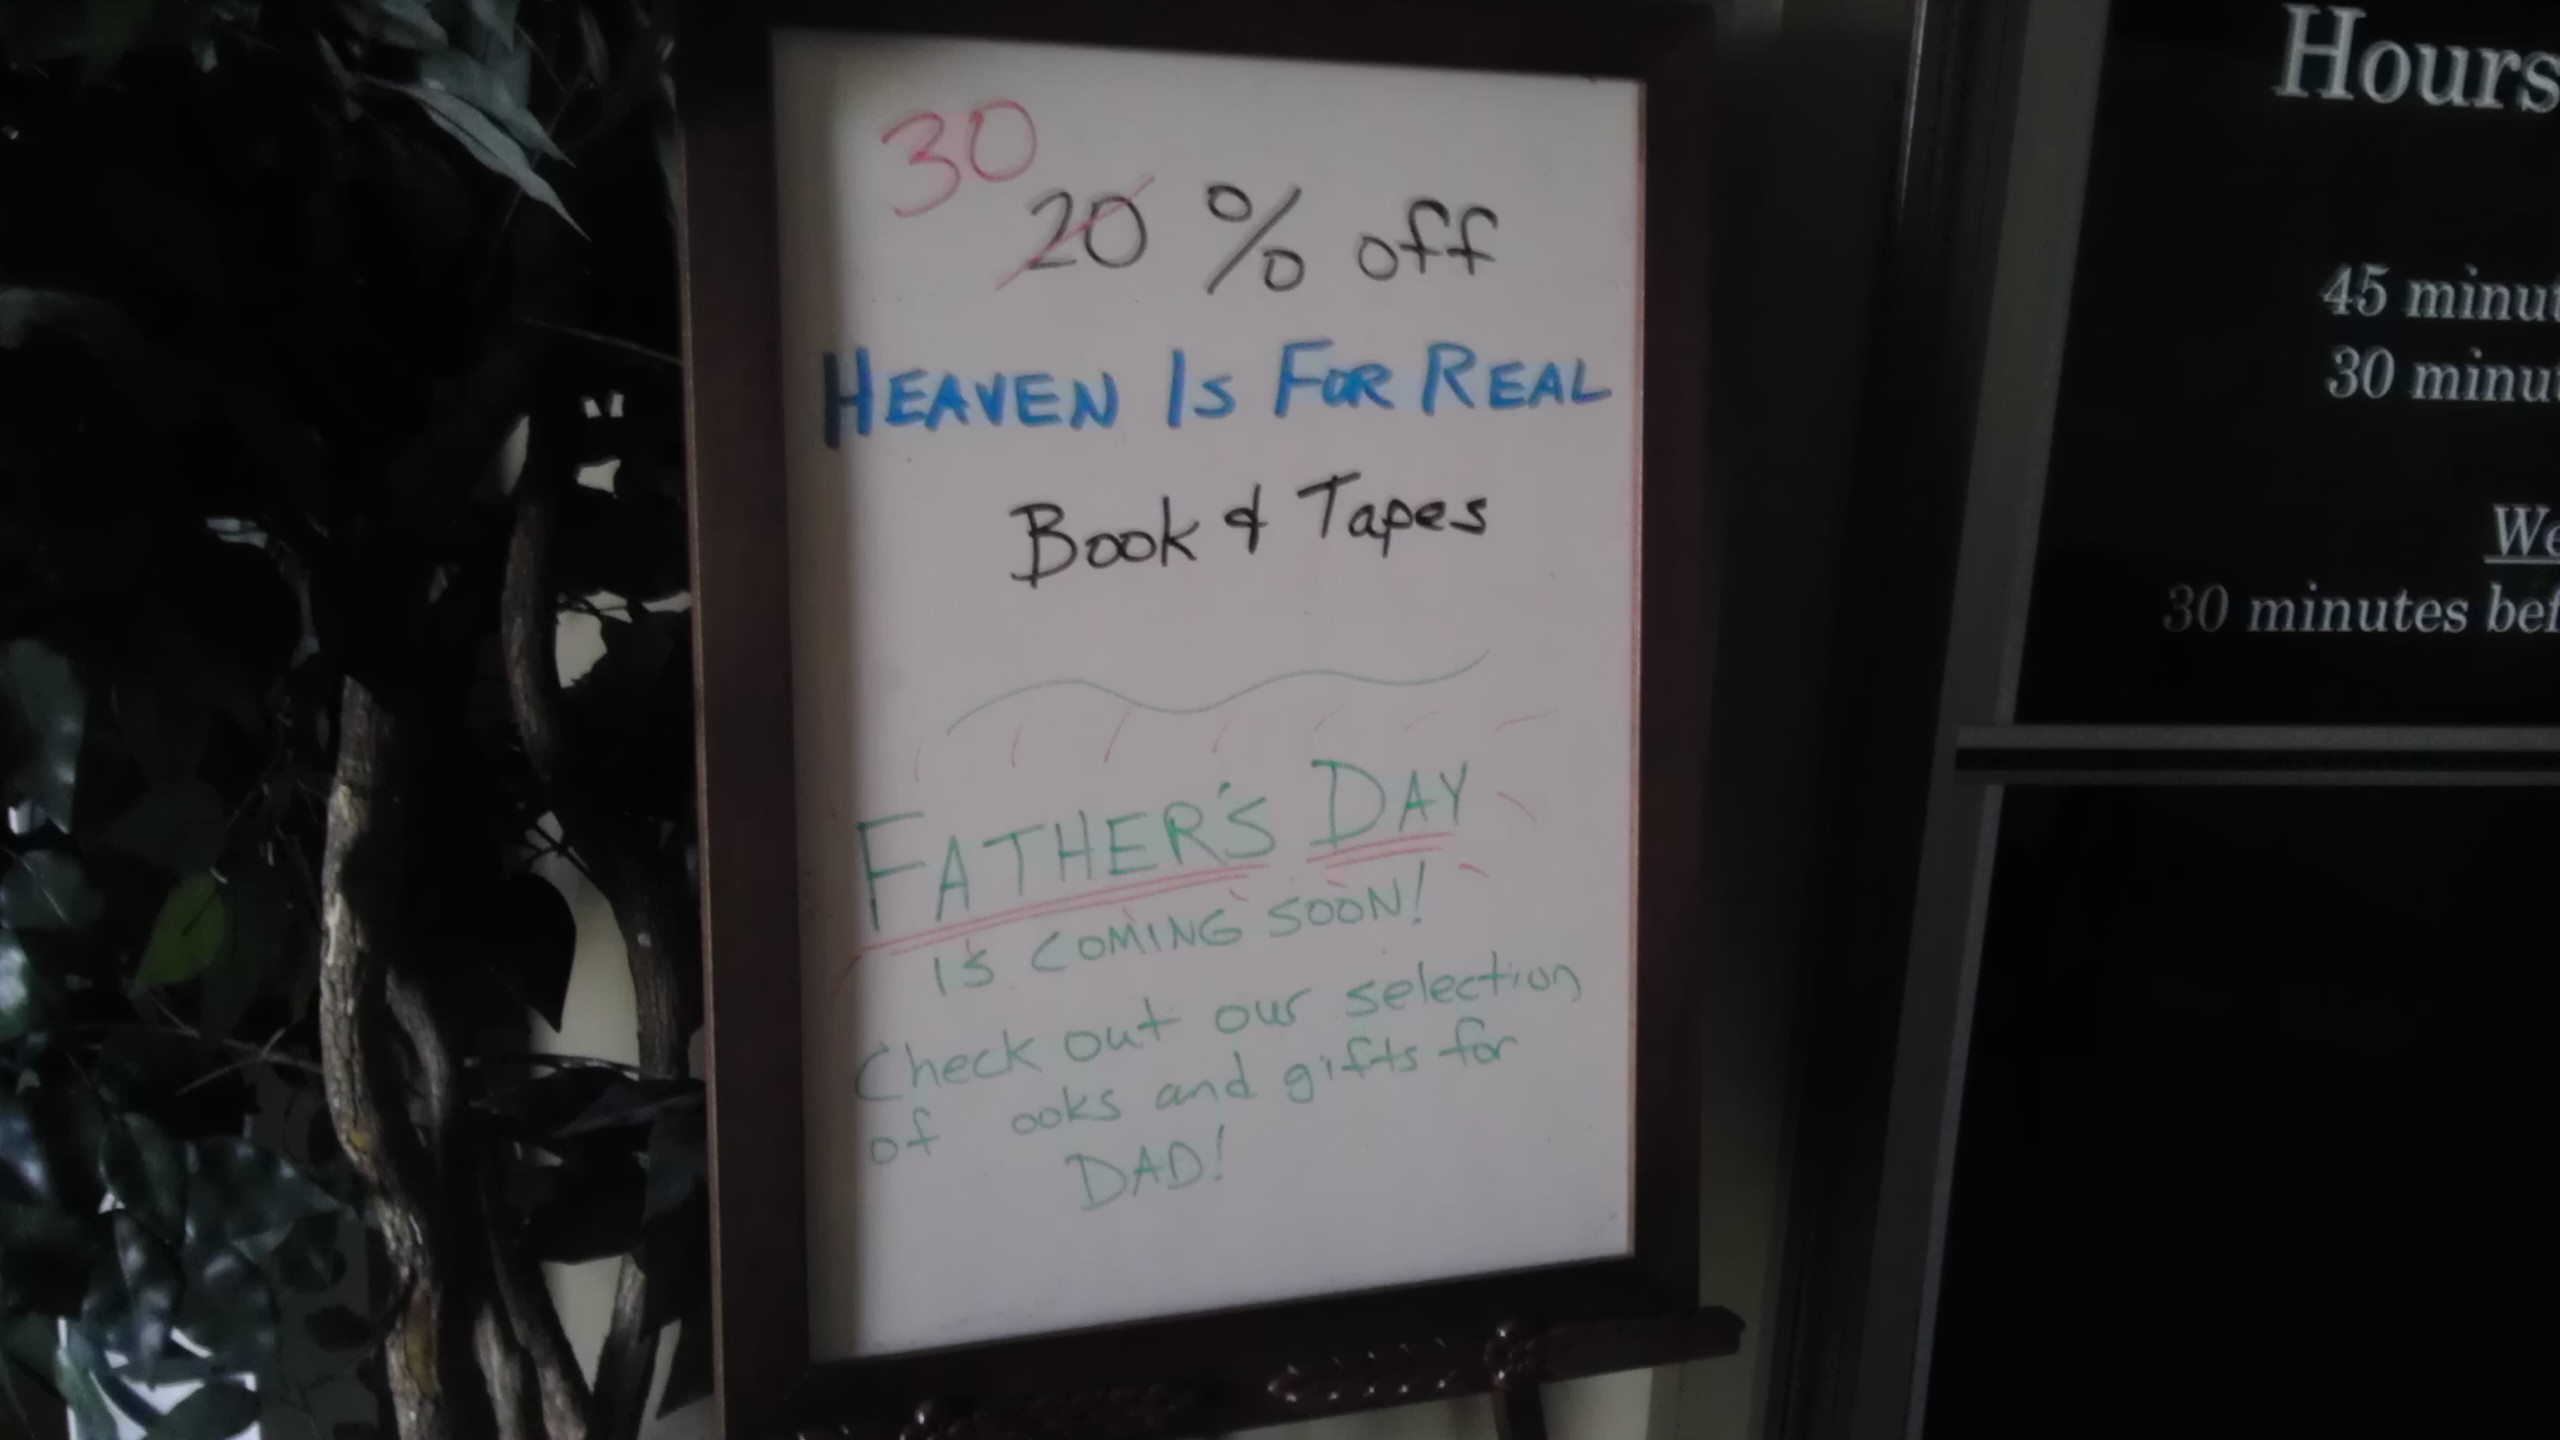 30
20 % off
HEAVEN IS FOR REAL
Book & Tapes
FATHER'S DAY
IS COMING SOON!
Check out our selection
of ooks and gifts for
DAD!
Hours
45 minut
30 minut
We
30 minutes bef